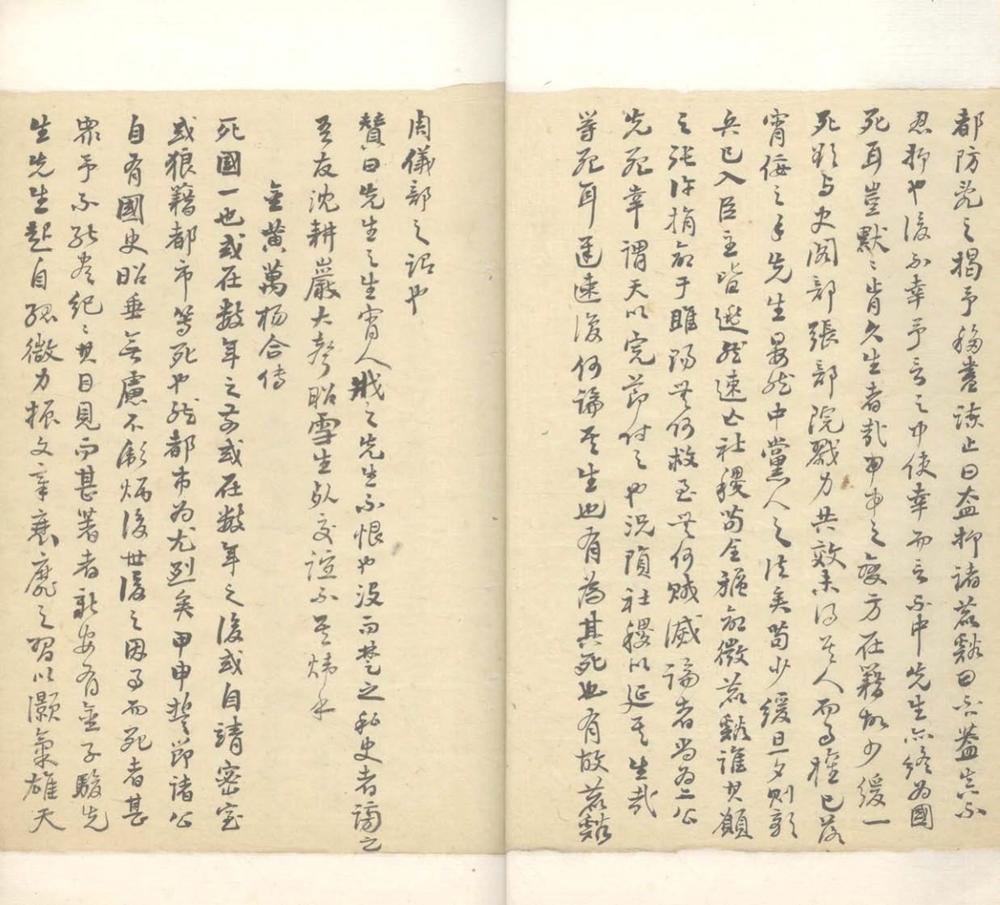 都防亂之揭予夥書諸止曰盍抑諸茗谿曰否蓋寔不
忍抑也後不幸予言之中使幸而言不中先生亦終為國
死耳豈默默肯久生者哉甲申之變方在籍儻少緩一
死能與史閣部張部院戮力共效未得其人而事權已落
宵佞之手先生晏然中黨人之禍矣苟少緩旦夕則
兵已入臣主皆逃然速亡社稷苟全軀命微茗谿誰其願
之張許捐命于睢陽無何救至無何賊滅論者尚為二公
先死幸謂天以完節付之也況隕社稷以延其生哉
等死耳遲速復何論其生也有為其死也有故茗谿
周儀部之詔也
贊曰先生之生宵人戕之先生不恨也沒而楚之私史者謗之
吾友沈耕巖大聲昭雪生死交誼不其煒乎
金黃萬楊合傳
死國一也或在數年之前或在數年之後或自請密室
或狼籍都市等死也然都市為尤烈矣甲申誓節諸公
自有國史昭垂無慮不彪炳後世後之因事而死者甚
眾予不能盡紀紀其目見而甚著者新安有金子駿先
生先生起自孤微力振文章衰靡之習以灝氣雄天